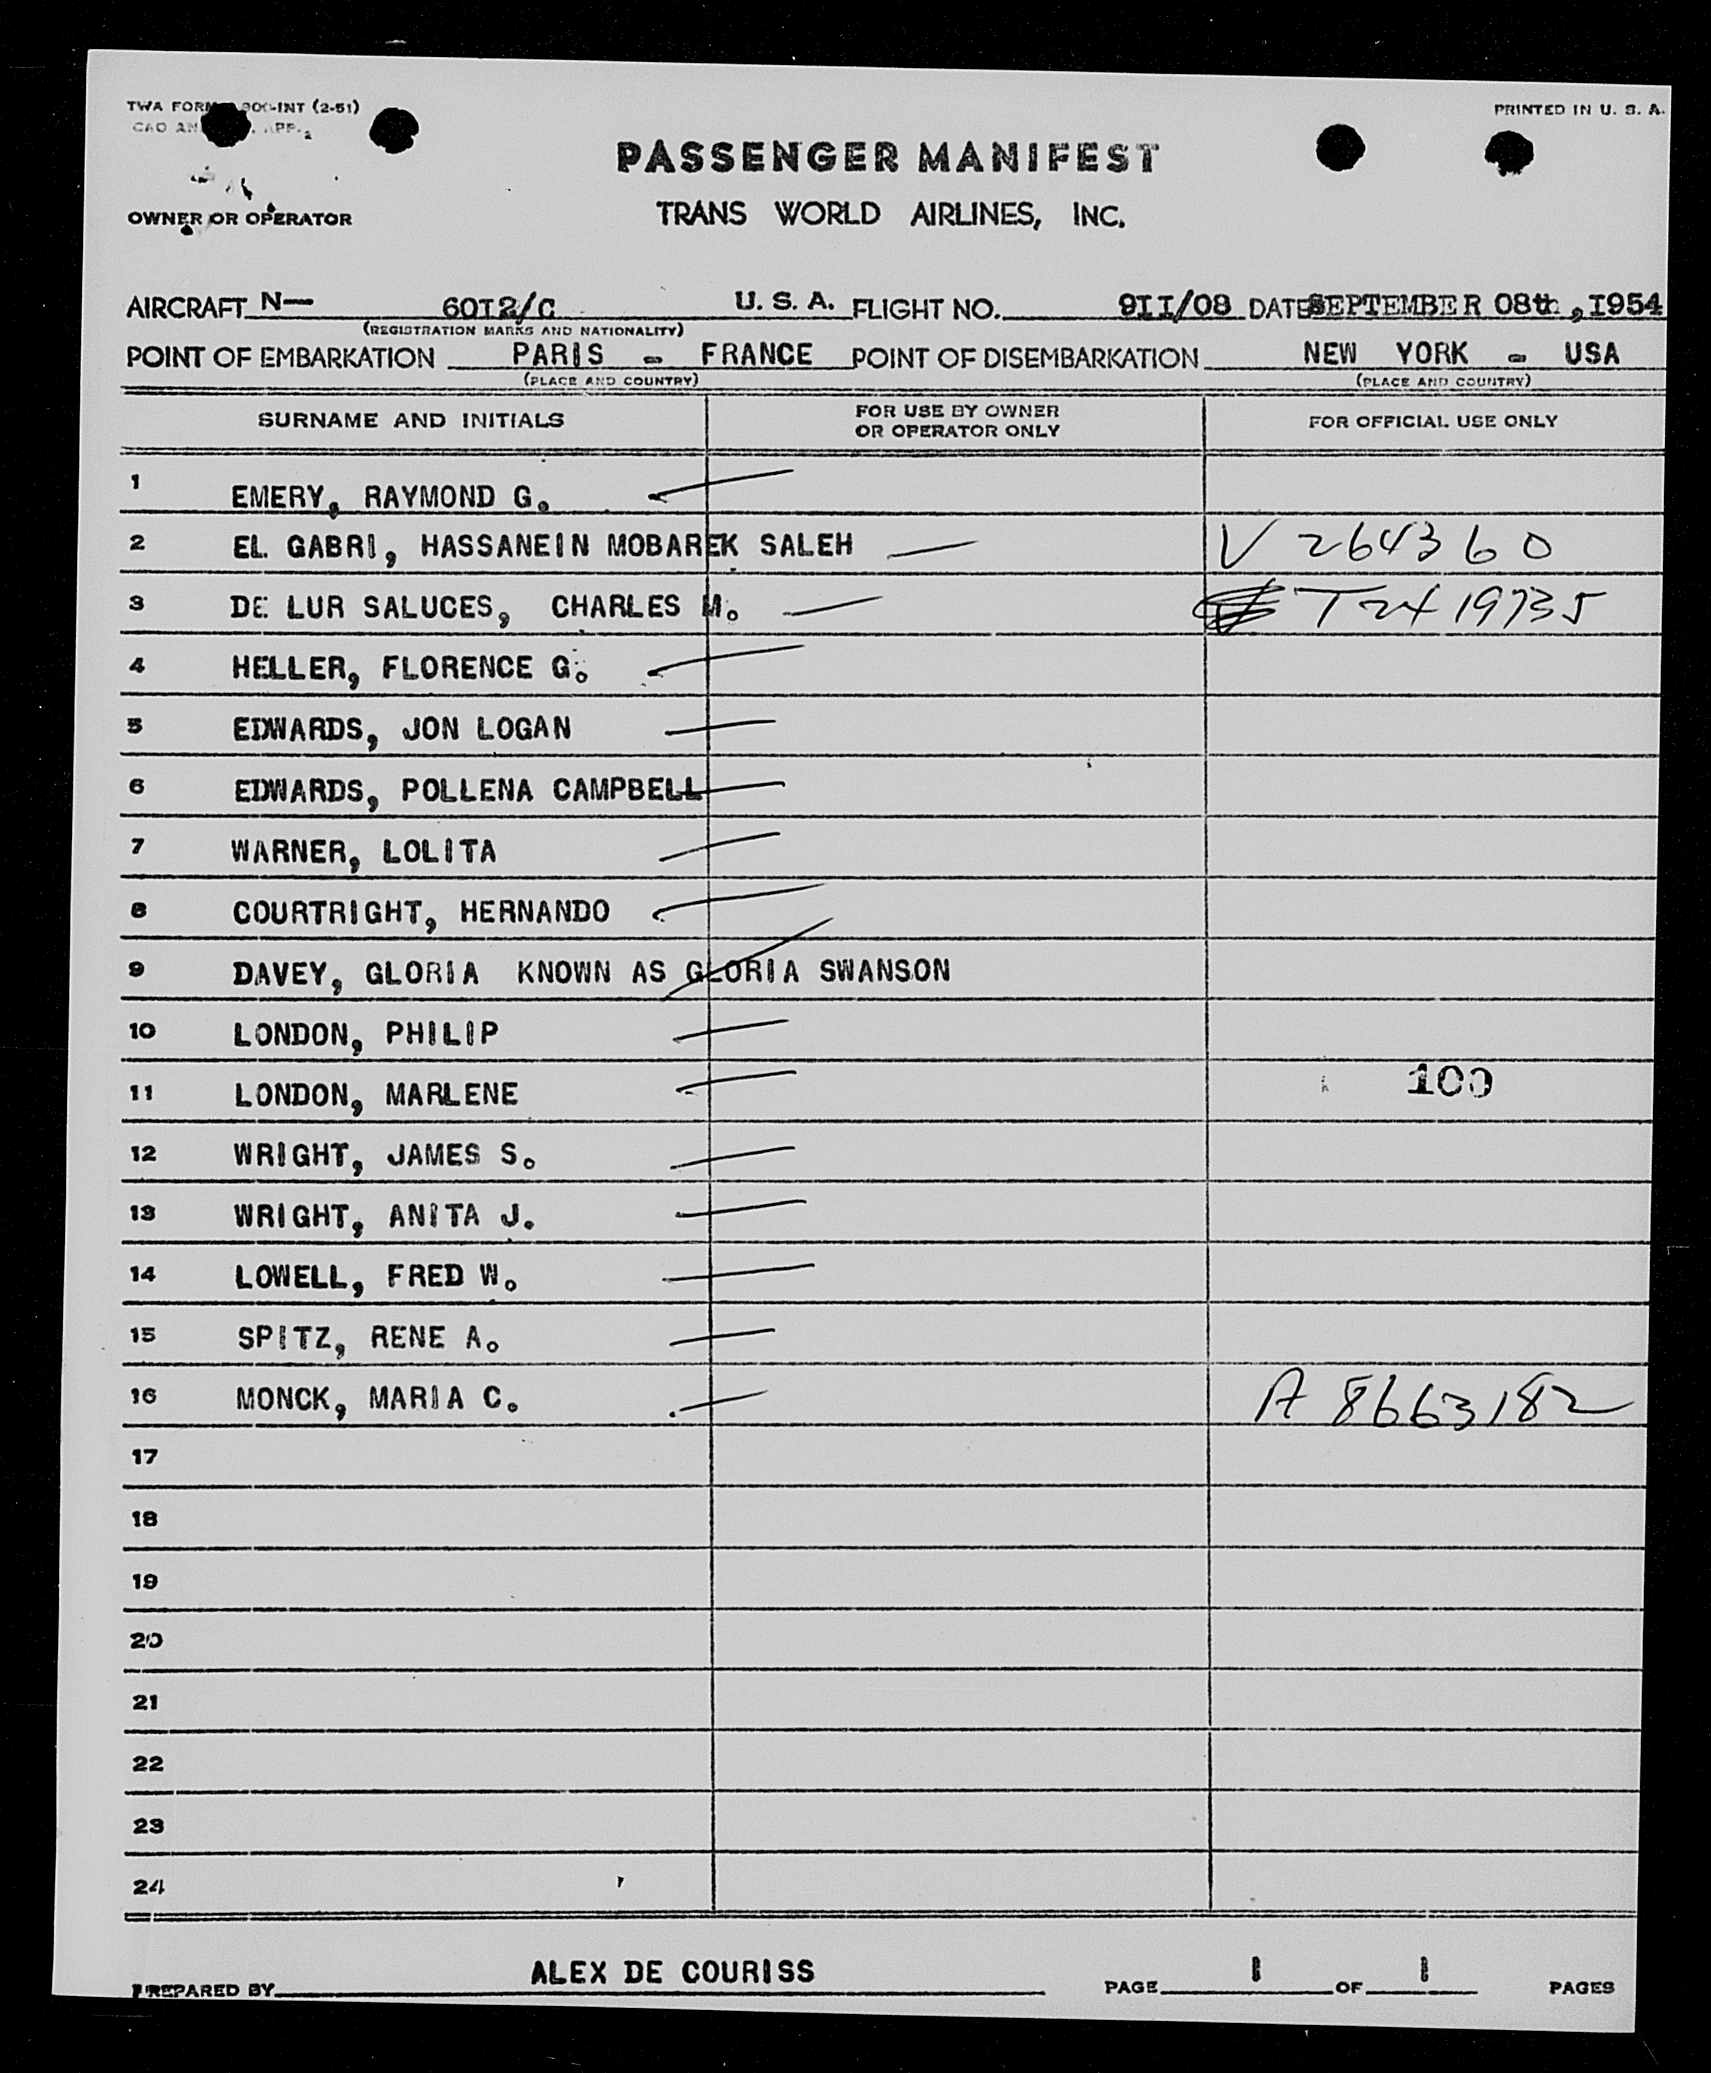 TWA FORM 900-INT (2-51)
PRINTED IN U. S. A.
CAO AN APP. 2
PASSENGER MANIFEST
OWNER OR OPERATOR
TRANS WORLD AIRLINES, INC.
AIRCRAFT N— 60I2/C U. S. A. FLIGHT NO. 9II/08 DATE SEPTEMBER 08th, I954
(REGISTRATION MARKS AND NATIONALITY)
POINT OF EMBARKATION PARIS - FRANCE POINT OF DISEMBARKATION NEW YORK - USA
(PLACE AND COUNTRY) (PLACE AND COUNTRY)
SURNAME AND INITIALS FOR USE BY OWNER OR OPERATOR ONLY FOR OFFICIAL USE ONLY
1 EMERY, RAYMOND G.
2 EL GABRI, HASSANEIN MOBAREK SALEH V 264360
3 DE LUR SALUCES, CHARLES M. T 2419735
4 HELLER, FLORENCE G.
5 EDWARDS, JON LOGAN
6 EDWARDS, POLLENA CAMPBELL
7 WARNER, LOLITA
8 COURTRIGHT, HERNANDO
9 DAVEY, GLORIA KNOWN AS GLORIA SWANSON
10 LONDON, PHILIP
11 LONDON, MARLENE 100
12 WRIGHT, JAMES S.
13 WRIGHT, ANITA J.
14 LOWELL, FRED W.
15 SPITZ, RENE A.
16 MONCK, MARIA C. A 8663182
17
18
19
20
21
22
23
24
PREPARED BY ALEX DE COURISS PAGE 1 OF 1 PAGES